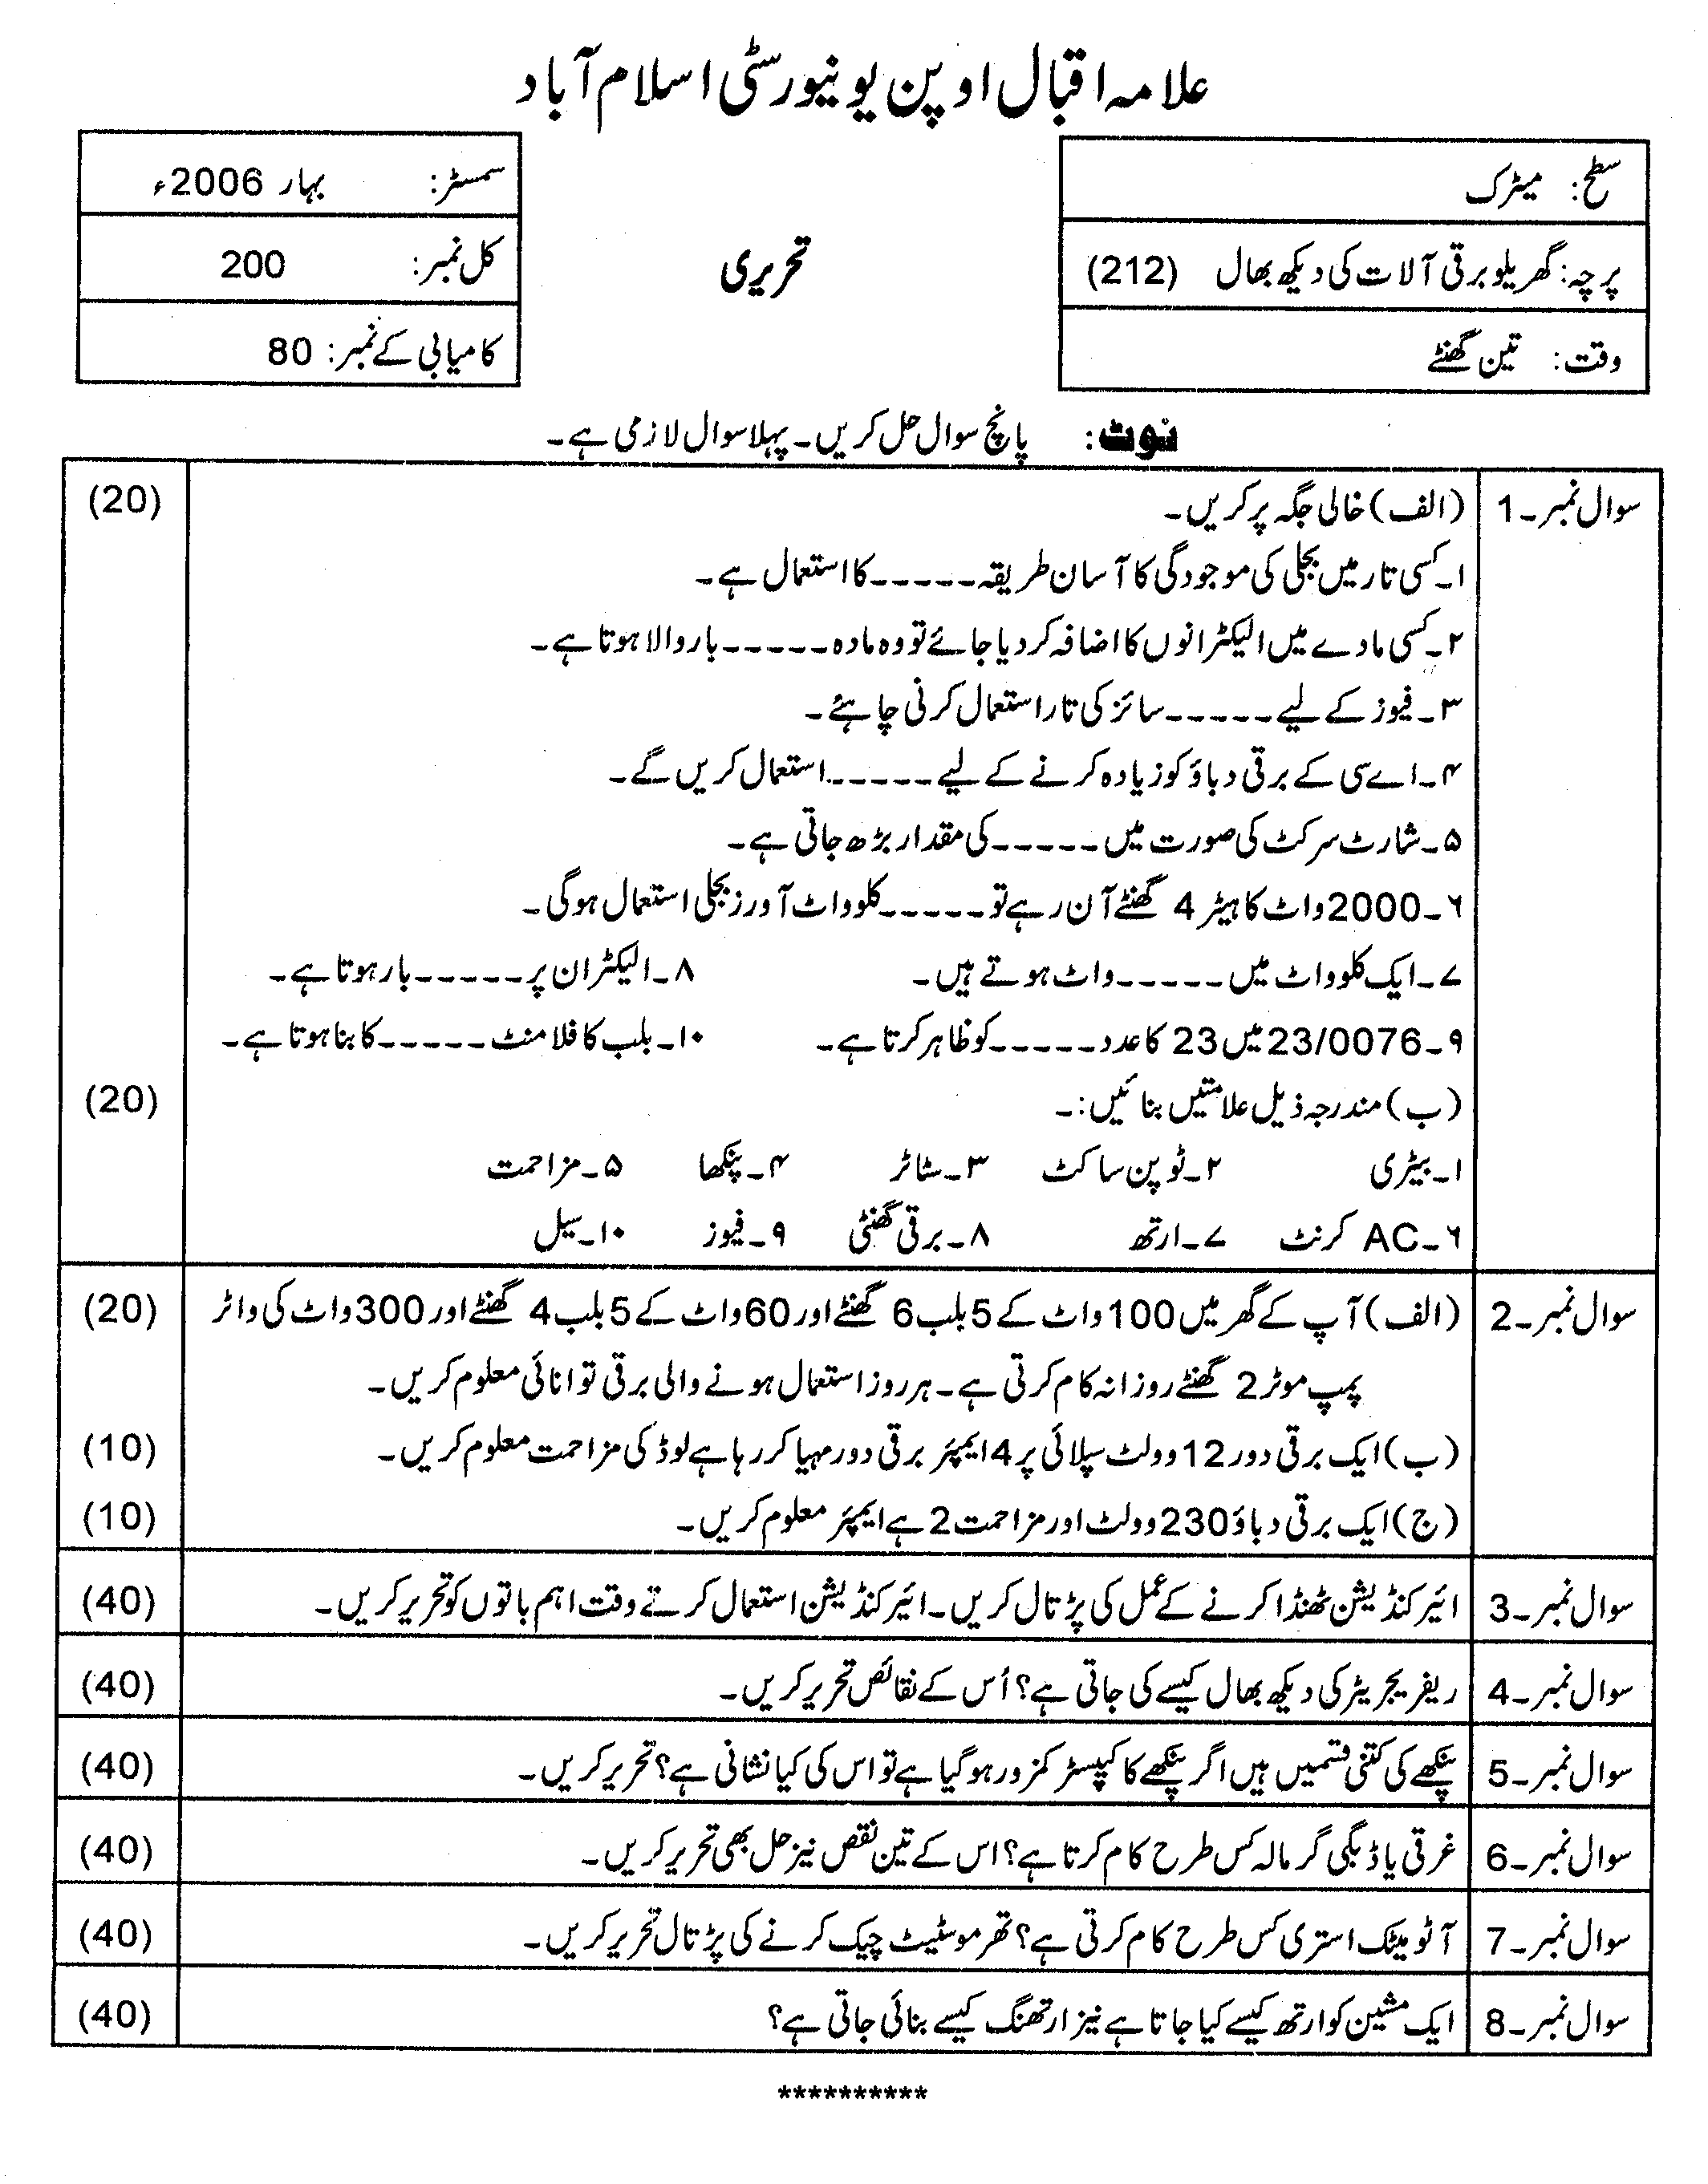 علامہ اقبال اوپن یونیورسٹی اسلام آباد
سطح: میٹرک
سمسٹر: بہار 2006ء
پرچہ: گھریلو برقی آلات کی دیکھ بھال (212)
تحریری
کل نمبر: 200
وقت: تین گھنٹے
کامیابی کے نمبر: 80
نوٹ: پانچ سوال حل کریں۔ پہلا سوال لازمی ہے۔
سوال نمبر۔1 (الف) خالی جگہ پر کریں۔ (20)
۱۔ کسی تار میں بجلی کی موجودگی کا آسان طریقہ ۔۔۔۔۔ کا استعمال ہے۔
۲۔ کسی مادے میں الیکٹرانوں کا اضافہ کر دیا جائے تو وہ مادہ ۔۔۔۔۔ بار والا ہوتا ہے۔
۳۔ فیوز کے لیے ۔۔۔۔۔ سائز کی تار استعمال کرنی چاہئے۔
۴۔ اے سی کے برقی دباؤ کو زیادہ کرنے کے لیے ۔۔۔۔۔ استعمال کریں گے۔
۵۔ شارٹ سرکٹ کی صورت میں ۔۔۔۔۔ کی مقدار بڑھ جاتی ہے۔
۶۔ 2000 واٹ کا ہیٹر 4 گھنٹے آن رہے تو ۔۔۔۔۔ کلو واٹ آورز بجلی استعمال ہوگی۔
۷۔ ایک کلو واٹ میں ۔۔۔۔۔ واٹ ہوتے ہیں۔ ۸۔ الیکٹران پر ۔۔۔۔۔ بار ہوتا ہے۔
۹۔ 23/0076 میں 23 کا عدد ۔۔۔۔۔ کو ظاہر کرتا ہے۔ ۱۰۔ بلب کا فلامنٹ ۔۔۔۔۔ کا بنا ہوتا ہے۔
(ب) مندرجہ ذیل علامتیں بنائیں:۔ (20)
۱۔ بیٹری ۲۔ ٹو پن ساکٹ ۳۔ سٹاٹر ۴۔ پنکھا ۵۔ مزاحمت
۶۔ AC کرنٹ ۷۔ ارتھ ۸۔ برقی گھنٹی ۹۔ فیوز ۱۰۔ سیل
سوال نمبر۔2 (الف) آپ کے گھر میں 100 واٹ کے 5 بلب 6 گھنٹے اور 60 واٹ کے 5 بلب 4 گھنٹے اور 300 واٹ کی واٹر (20)
پمپ موٹر 2 گھنٹے روزانہ کام کرتی ہے۔ ہر روز استعمال ہونے والی برقی توانائی معلوم کریں۔
(ب) ایک برقی دور 12 وولٹ سپلائی پر 4 ایمپئر برقی دور مہیا کر رہا ہے لوڈ کی مزاحمت معلوم کریں۔ (10)
(ج) ایک برقی دباؤ 230 وولٹ اور مزاحمت 2 ہے ایمپئر معلوم کریں۔ (10)
سوال نمبر۔3 ائیر کنڈیشن ٹھنڈا کرنے کے عمل کی پڑتال کریں۔ ائیر کنڈیشن استعمال کرتے وقت اہم باتوں کو تحریر کریں۔ (40)
سوال نمبر۔4 ریفریجریٹر کی دیکھ بھال کیسے کی جاتی ہے؟ اُس کے نقائص تحریر کریں۔ (40)
سوال نمبر۔5 پنکھے کی کتنی قسمیں ہیں اگر پنکھے کا کپیسٹر کمزور ہو گیا ہے تو اس کی کیا نشانی ہے؟ تحریر کریں۔ (40)
سوال نمبر۔6 غرقی یا ڈبگی گرمالہ کس طرح کام کرتا ہے؟ اس کے تین نقص نیز حل بھی تحریر کریں۔ (40)
سوال نمبر۔7 آٹو میٹک استری کس طرح کام کرتی ہے؟ تھرموسٹیٹ چیک کرنے کی پڑتال تحریر کریں۔ (40)
سوال نمبر۔8 ایک مشین کو ارتھ کیسے کیا جاتا ہے نیز ارتھنگ کیسے بنائی جاتی ہے؟ (40)
**********